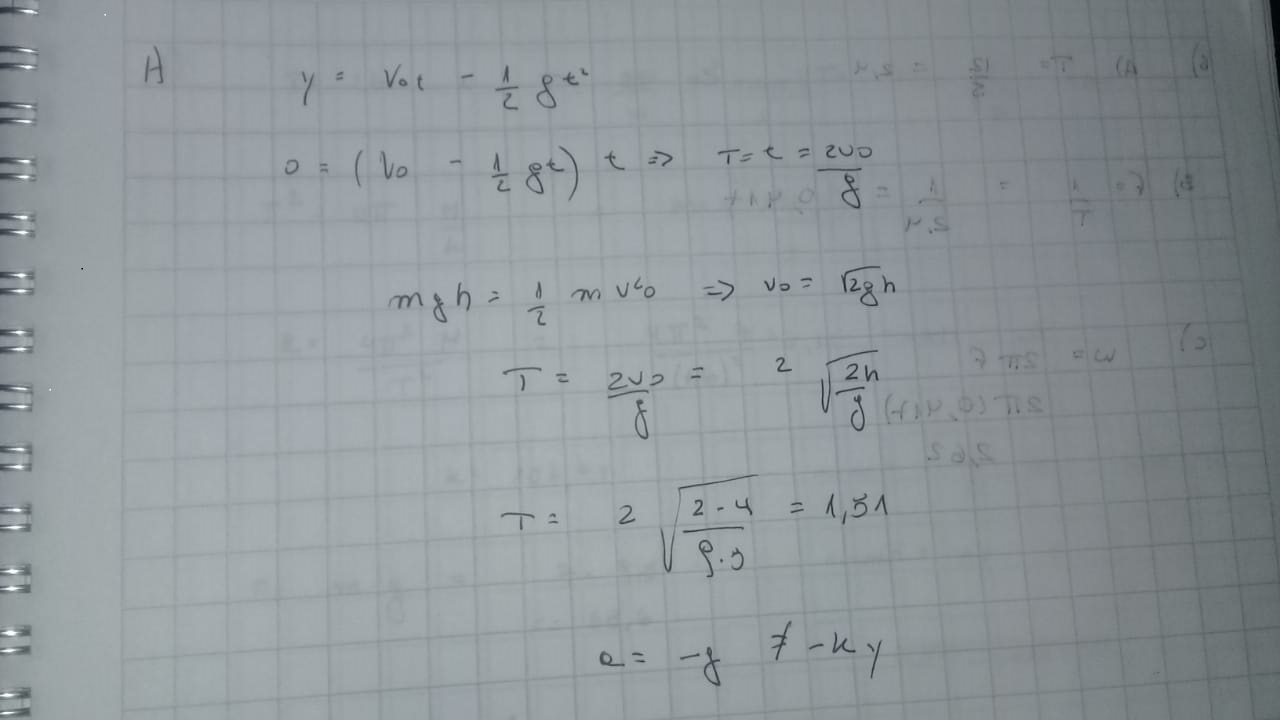 A y = v₀t - 1/2 gt²
0 = (v₀ - 1/2 gt) t => T = t = 2v₀/g
mgh = 1/2 mv²₀ => v₀ = √2gh
T = 2v₀/g = 2 √(2h/g)
T = 2 √(2·4/9.9) = 1,51
a = -g ≠ -ky